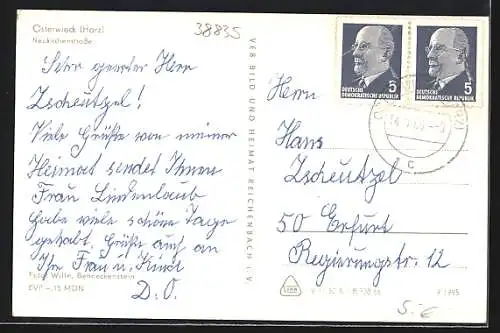 Osterwieck (Harz)
Neukirchenstraße
38835
Sehr geerter Herr
Zscheutzel!
Viele Grüße von meiner
Heimat sendet Ihnen
Frau Lindenlaub
Habe viele schöne Tage
gehabt. Grüße auch an
Ihre Frau u. Kind
D. O.
Foto: Wille, Benneckenstein
EVP –,15 MDN
VEB BILD UND HEIMAT REICHENBACH i. V.
5
DEUTSCHE
DEMOKRATISCHE REPUBLIK
5
DEUTSCHE
DEMOKRATISCHE REPUBLIK
c
Herrn
Hans
Zscheutzel
50 Erfurt
Regierungstr. 12